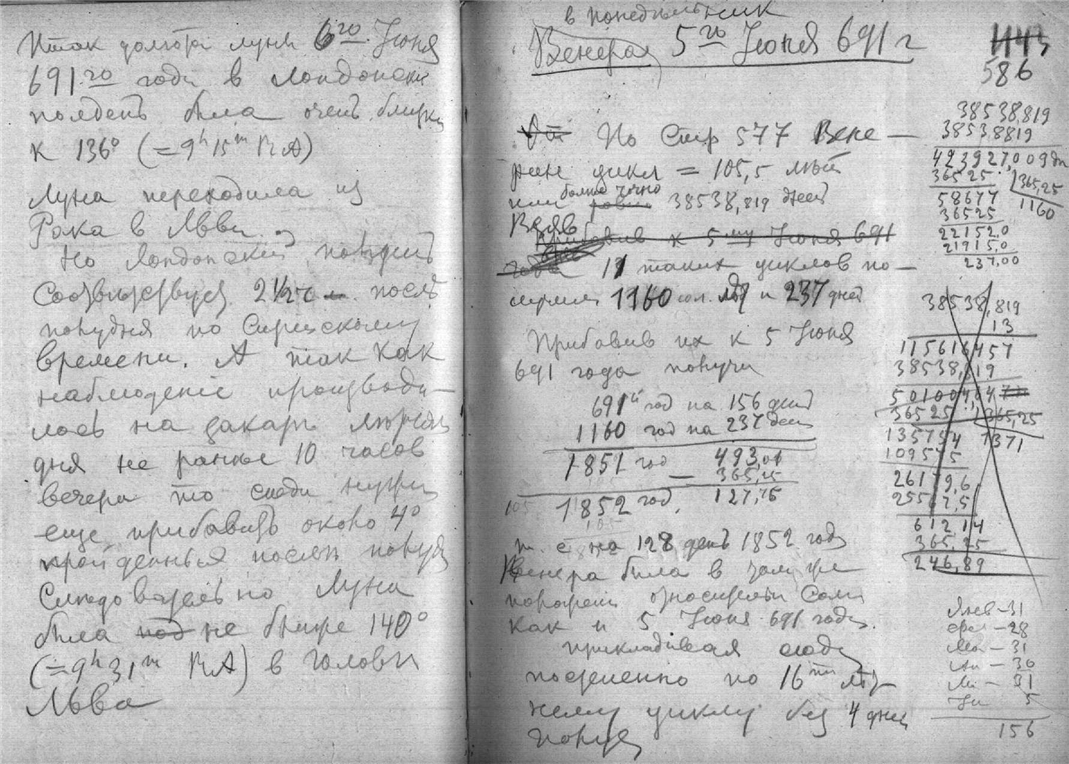 Итак долгота луны 6го Июня
691го года в Лондонский
полдень была очень близка
к 136° (=9h 15m RA)
Луна переходила из
Рака в Льва.
Но Лондонский полдень
Соответствует 2½ после
полудня по Сирийскому
времени. А так как
наблюденіе производи-
лось на
дня не раньше 10 часов
вечера то сюда нужно
еще прибавить около 4°
пройденных после полудня
Следовательно Луна
была не ближе 140°
(=9h 31m RA) в голове
Льва
в понедельник
Венера 5го Июня 691 г
По Стр 577 Вене-
рин цикл = 105,5 лет
или более точно 38538,819 дней
Взяв
Прибавив к 5му Июня 691
года 11 таких циклов по-
лучим 1160 юл. лет и 237 дней
Прибавив их к 5 Июня
691 года получим
691й год на 156 дней
1160 год на 237 дней
1851 год 493,01
– 365,25
1852 год. 127,76
т. е на 128 день 1852 года
Венера была в том же
положении относительно Солнца
как и 5 Июня 691 года.
прикладывая сюда
постепенно по 16ти лет-
нему циклу без 4 дней
получ
1143
586
38538,819
38538819
423927,009 дн
36525 365,25
58677 1160
36525
22152,0
21915,0
237,00
38538,819
13
115616457
38538,819
501004,647
36525 365,25
135754 1371
109575
26179,6
25567,5
612,14
365,25
246,89
Янв – 31
Фев – 28
Ма – 31
Ап – 30
Ма – 31
Ин 5
156